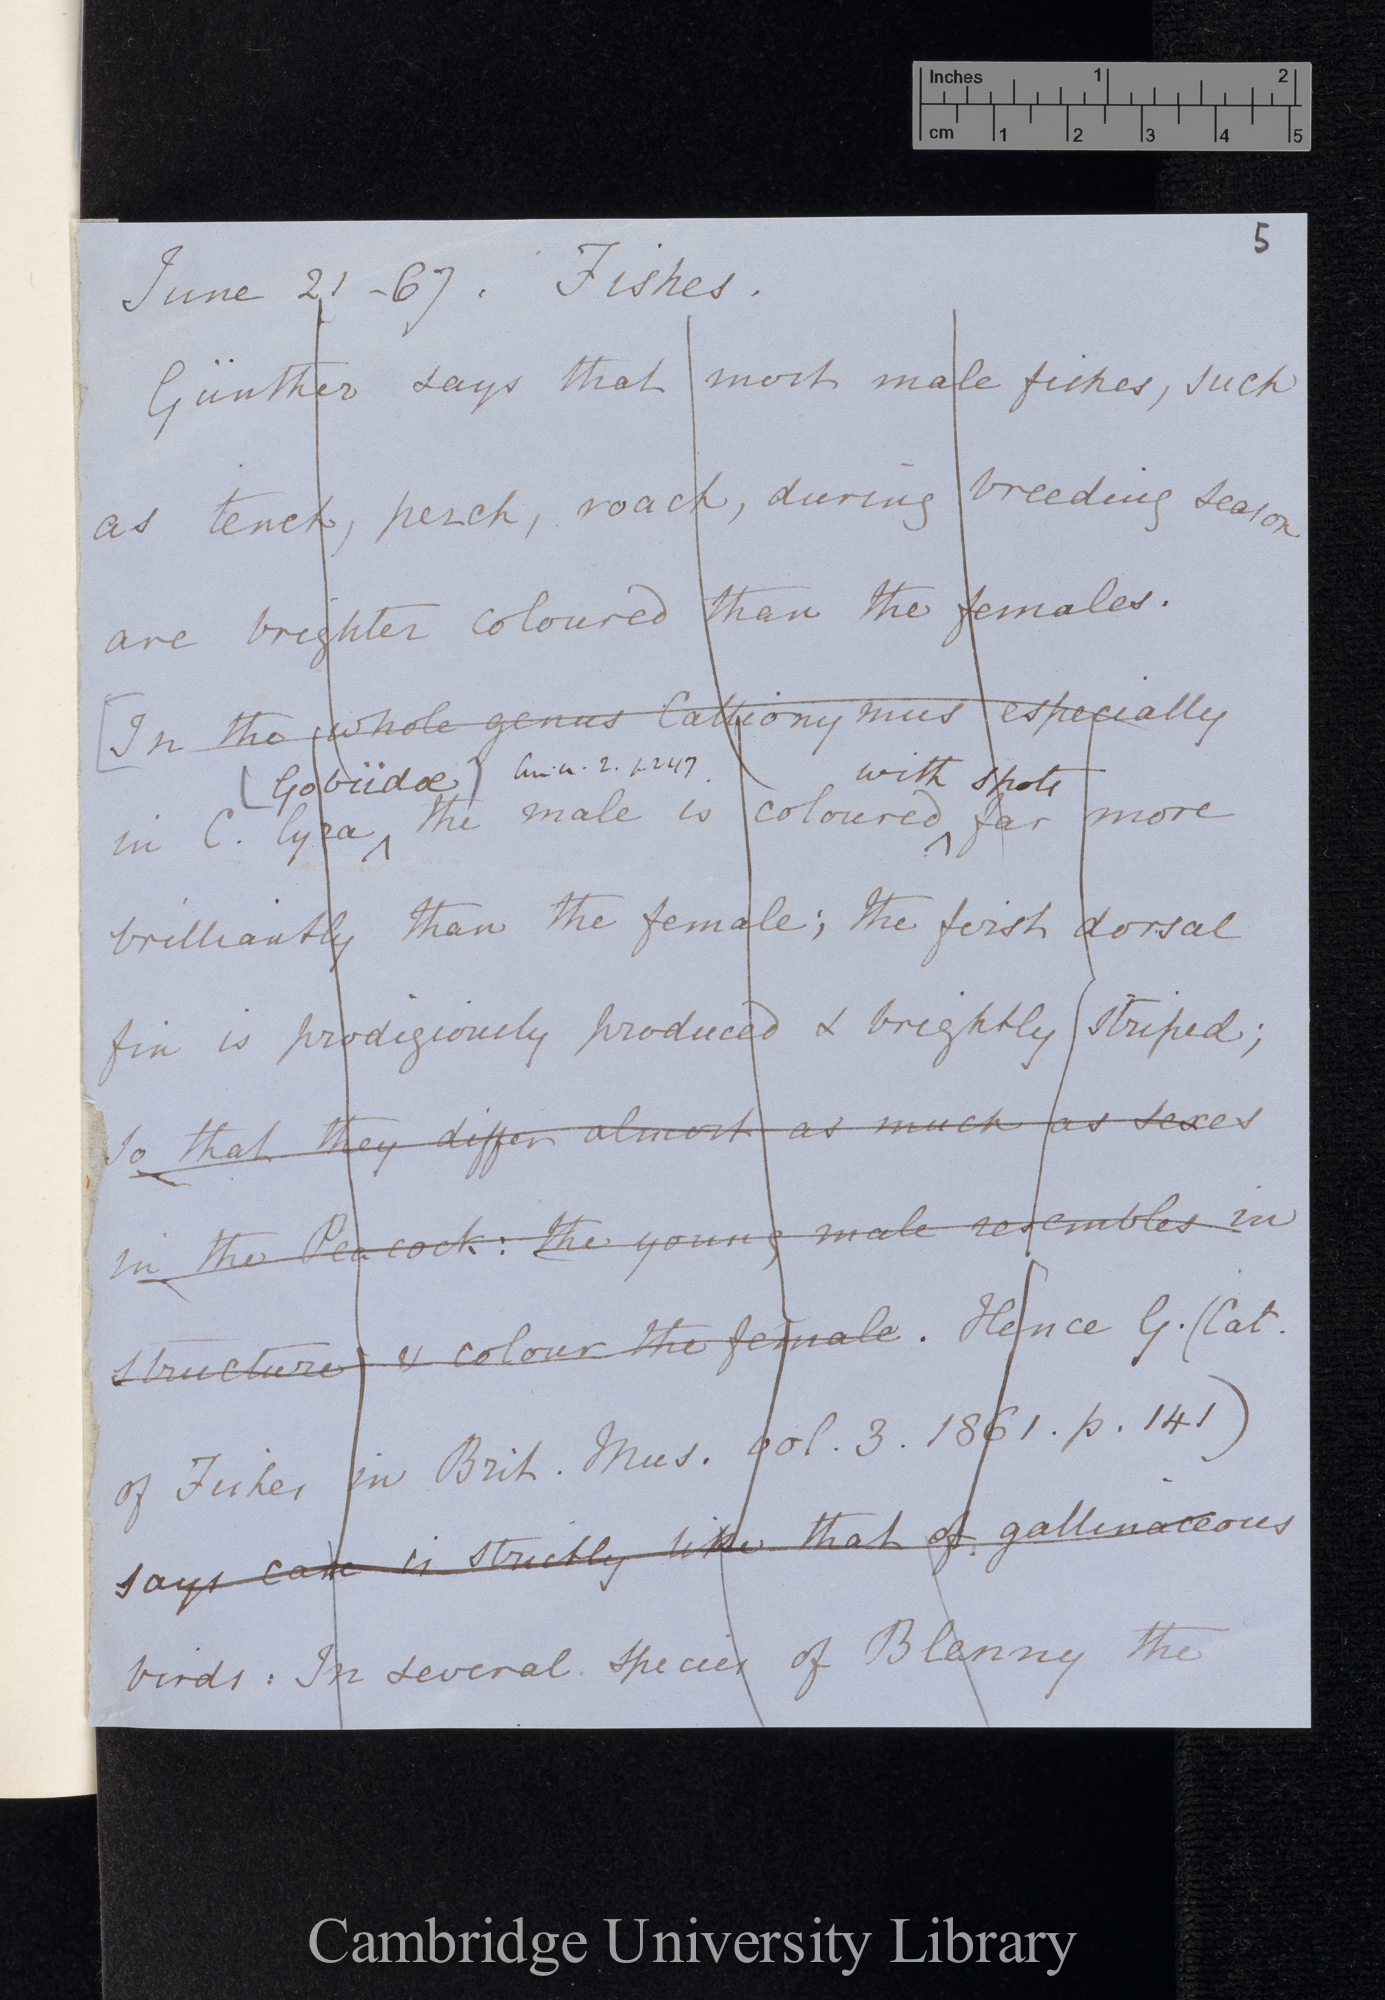 Inches 1 2
cm 1 2 3 4 5
5
June 21 - 67. Fishes.
Günther says that most male fishes, such
as tench, perch, roach, during breeding season
are brighter coloured than the females.
[In the whole genus Callionymus especially
(Gobiidæ) 2. p 247. with spots
in C. lyra ^ the male is coloured ^ far more
brilliantly than the female; the first dorsal
fin is prodigiously produced & brightly striped;
so that they differ almost as much as sexes
in the Peacock: the young male resembles in
structure & colour the female. Hence G. (Cat.
of Fishes in Brit. Mus. vol. 3. 1861. p. 141)
says case is strictly like that of gallinaceous
birds: In several species of Blenny the
Cambridge University Library